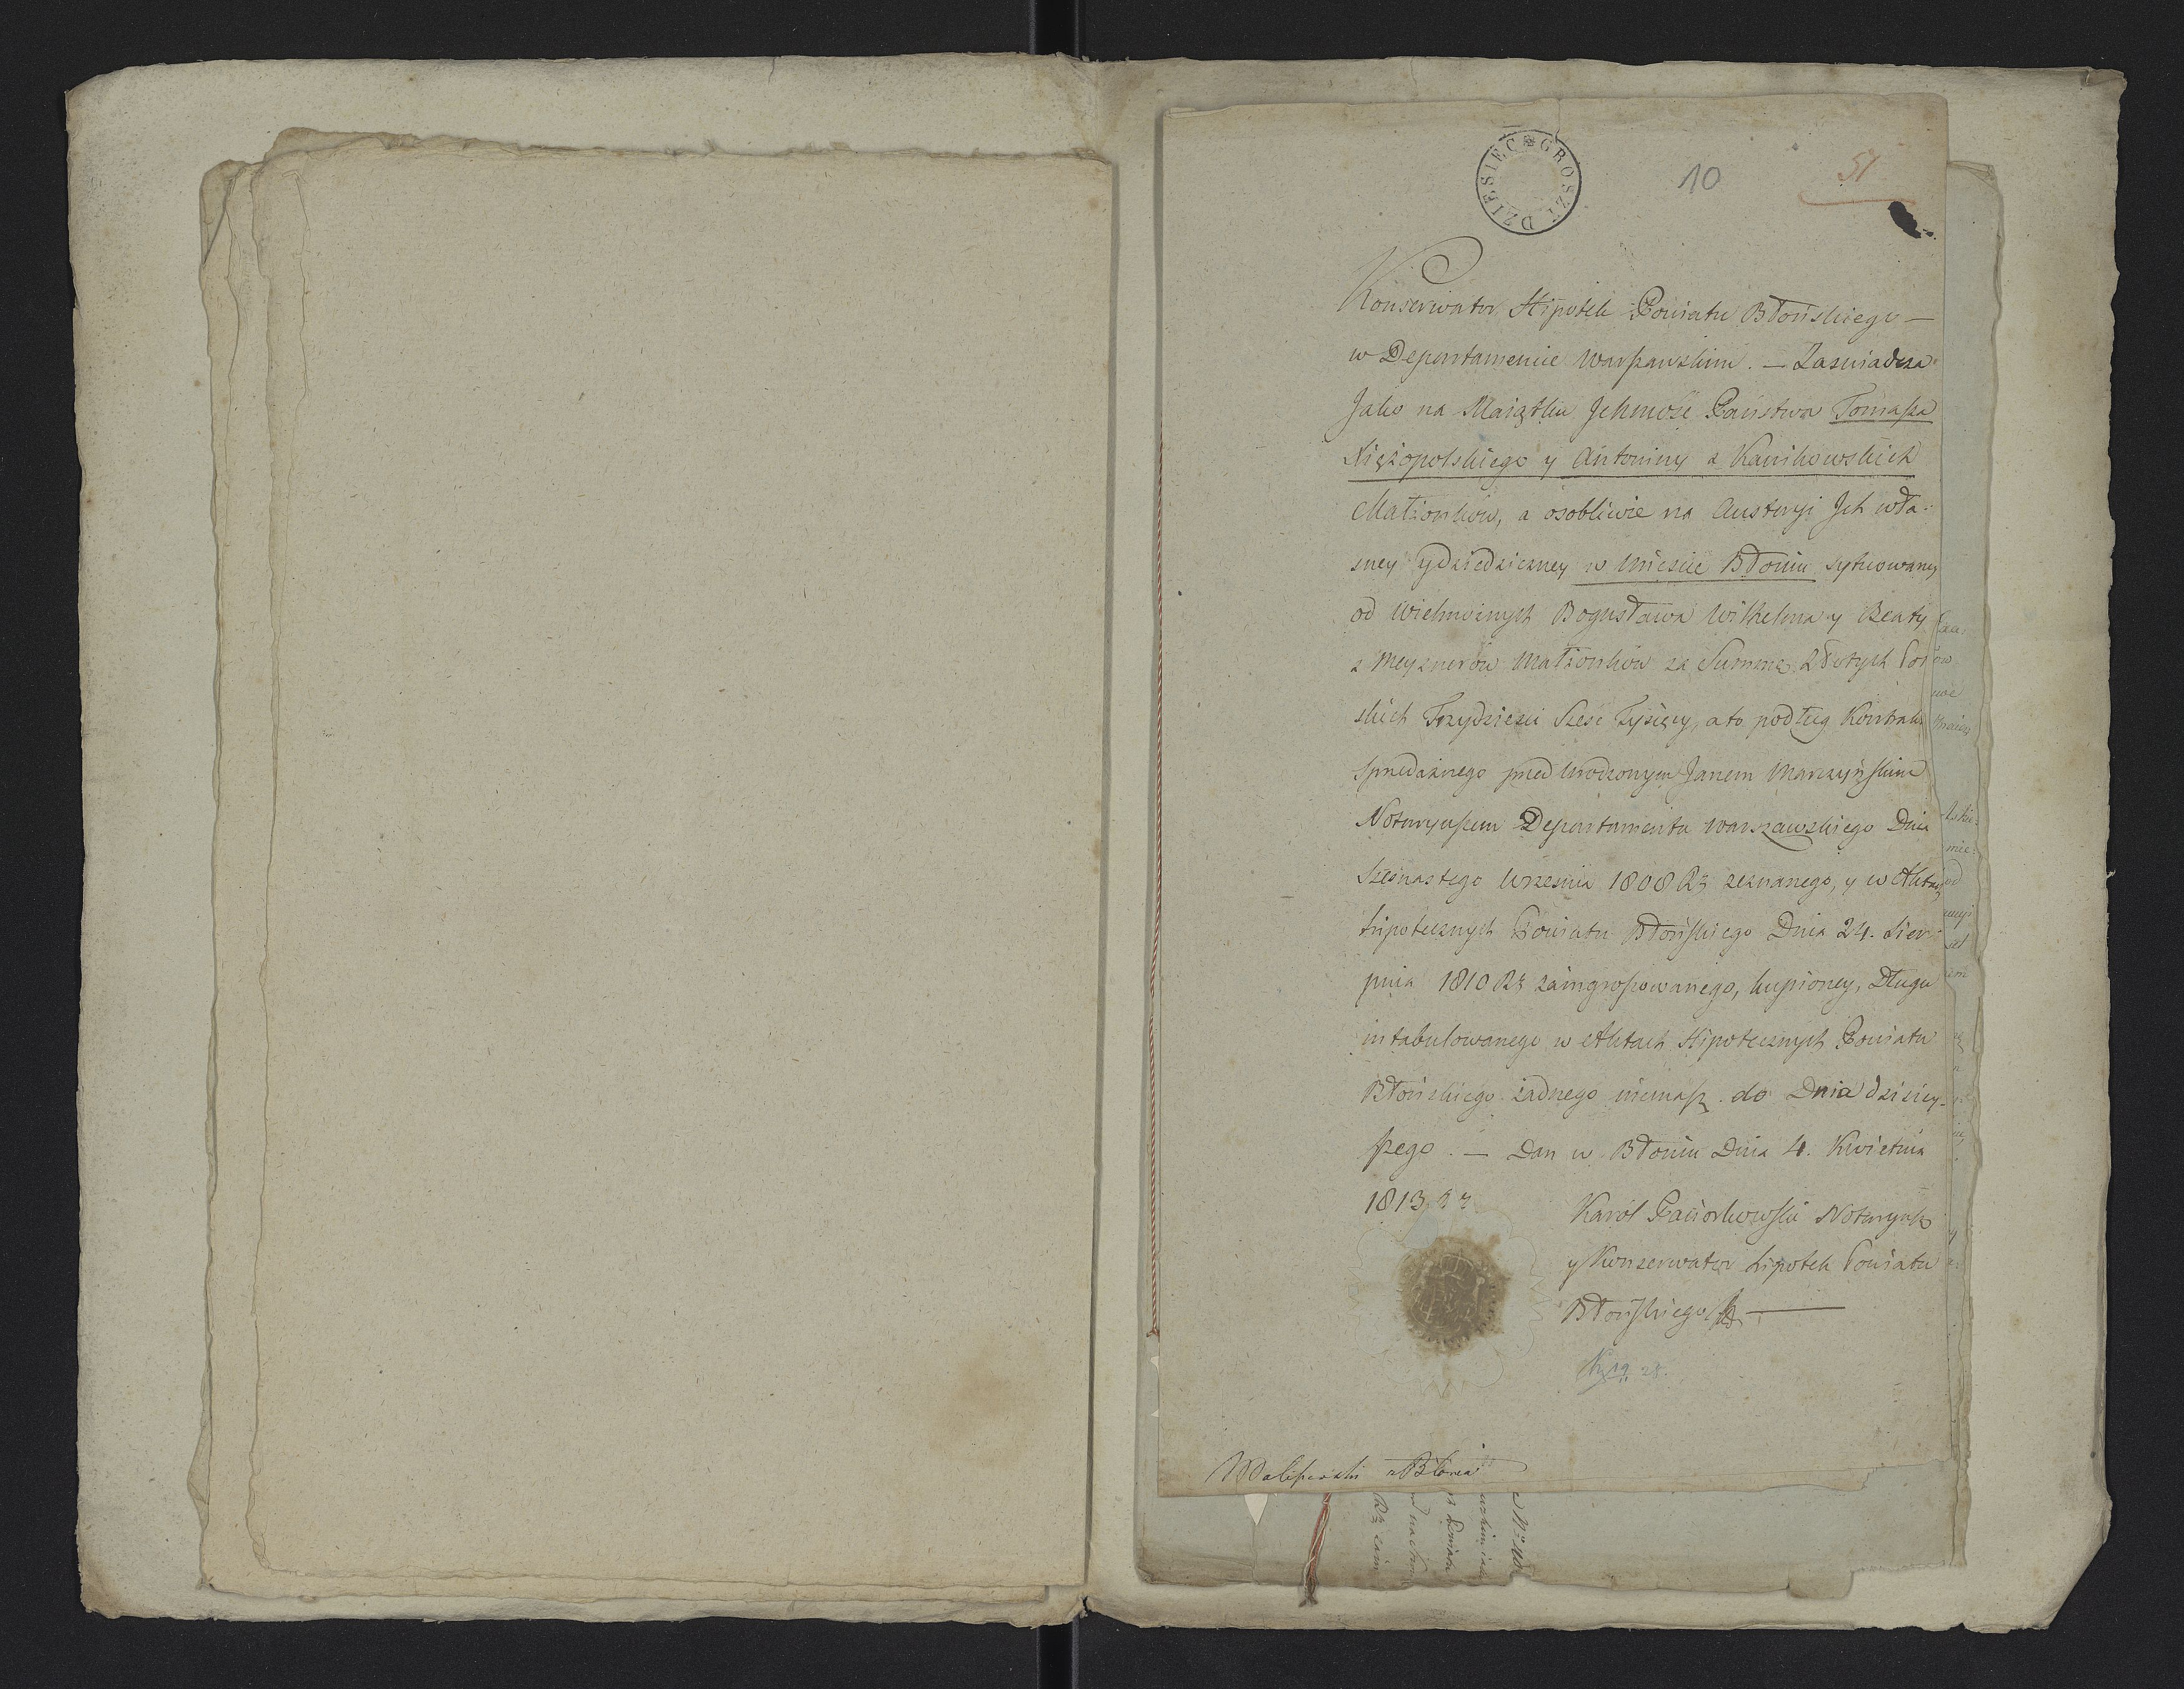 DZIESIĘC GROSZY
10
51
Konserwator Hipotek Powiatu Błońskiego —
w Departamencie Warszawskim. — Zaświadcza
Jako na Maiątku Jchmość Państwa Tomasza
Niężopolskiego y Antoniny z Kanikowskich
Małżonków, a osobliwie na Austeryi Jch wła-
sney y dziedziczney w Mieście Błoniu sytuowaney
od Wielmożnych Bogusława Wilhelma y Beaty
z Meyznerów Małżonków za Summę Złotych Pol
skich Trzydzieści Sześć Tysięcy, a to podług Kontraktu
Sprzedażnego przed Urodzonym Janem Marczyńskim
Notaryuszem Departamentu Warszawskiego Dnia
Szesnastego Września 1808 Rz zeznanego, y w Aktach
hipotecznych Powiatu Błońskiego Dnia 24. Sier-
pnia 1810 Rz zaingrossowanego, kupioney, Długu
intabulowanego w Aktach Hipotecznych Powiatu
Błońskiego żadnego niemasz do Dnia dzisiey-
szego. — Dan w Błoniu Dnia 4. Kwietnia
1813 Rz
Karol Paciorkowski Notaryusz
y Konserwator hipotek Powiatu
Błońskiego
z Błonia